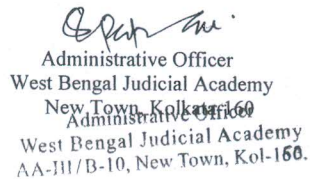 Administrative Officer
West Bengal Judicial Academy
New Town, Kolkata-160
Administrative Officer
West Bengal Judicial Academy
AA-III/B-10, New Town, Kol-160.